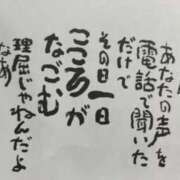 あなたの声を
電話で聞いた
だけで
その日一日
こころが
なごむ
理屈じゃねんだよ
なあ